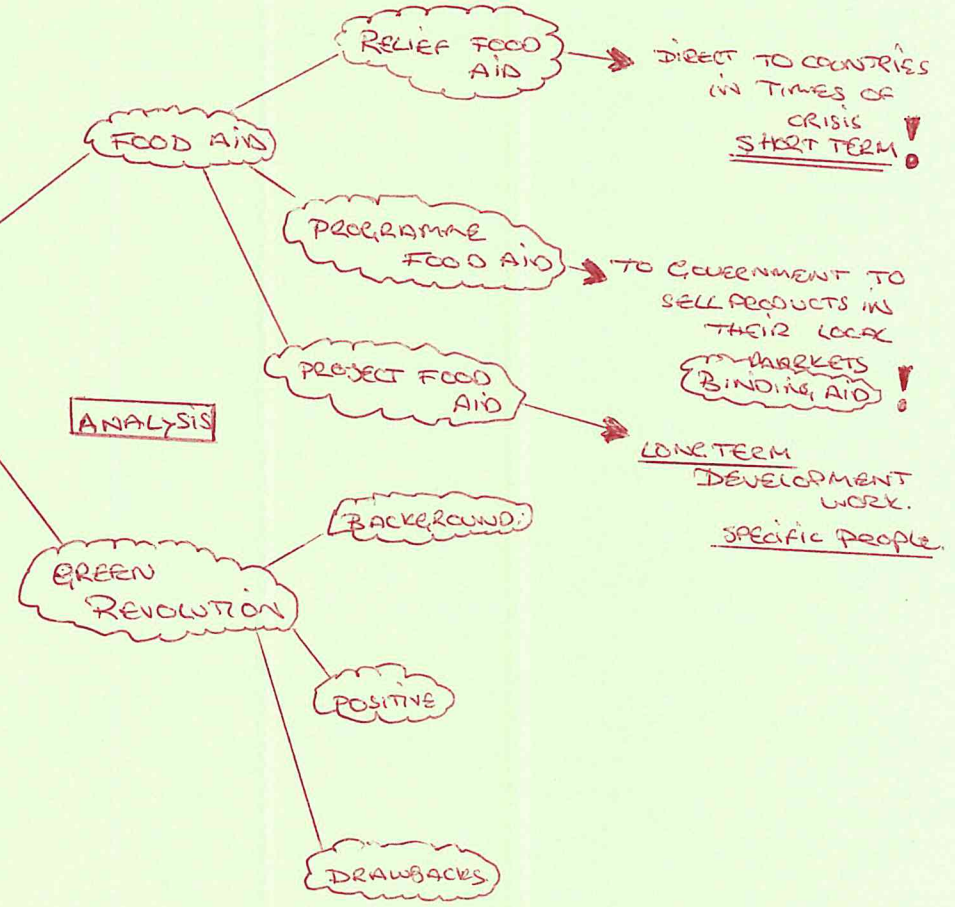 RELIEF FOOD
AID
DIRECT TO COUNTRIES
IN TIMES OF
CRISIS
SHORT TERM !
FOOD AID
PROGRAMME
FOOD AID
TO GOVERNMENT TO
SELL PRODUCTS IN
THEIR LOCAL
MARKETS
BINDING AID !
PROJECT FOOD
AID
LONG TERM
DEVELOPMENT
WORK.
SPECIFIC PEOPLE.
ANALYSIS
BACKGROUND:
GREEN
REVOLUTION
POSITIVE
DRAWBACKS